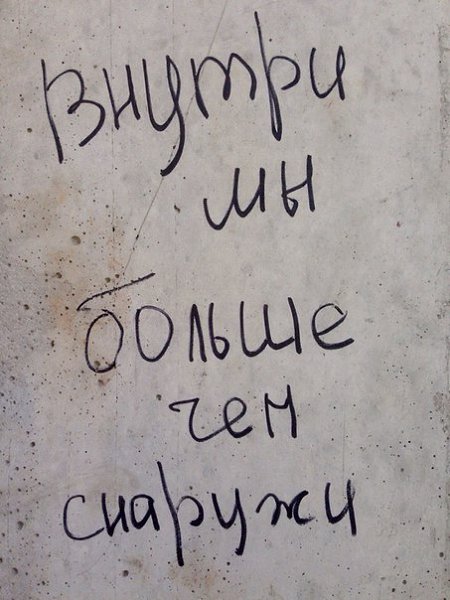 Внутри
мы
больше
чем
снаружи